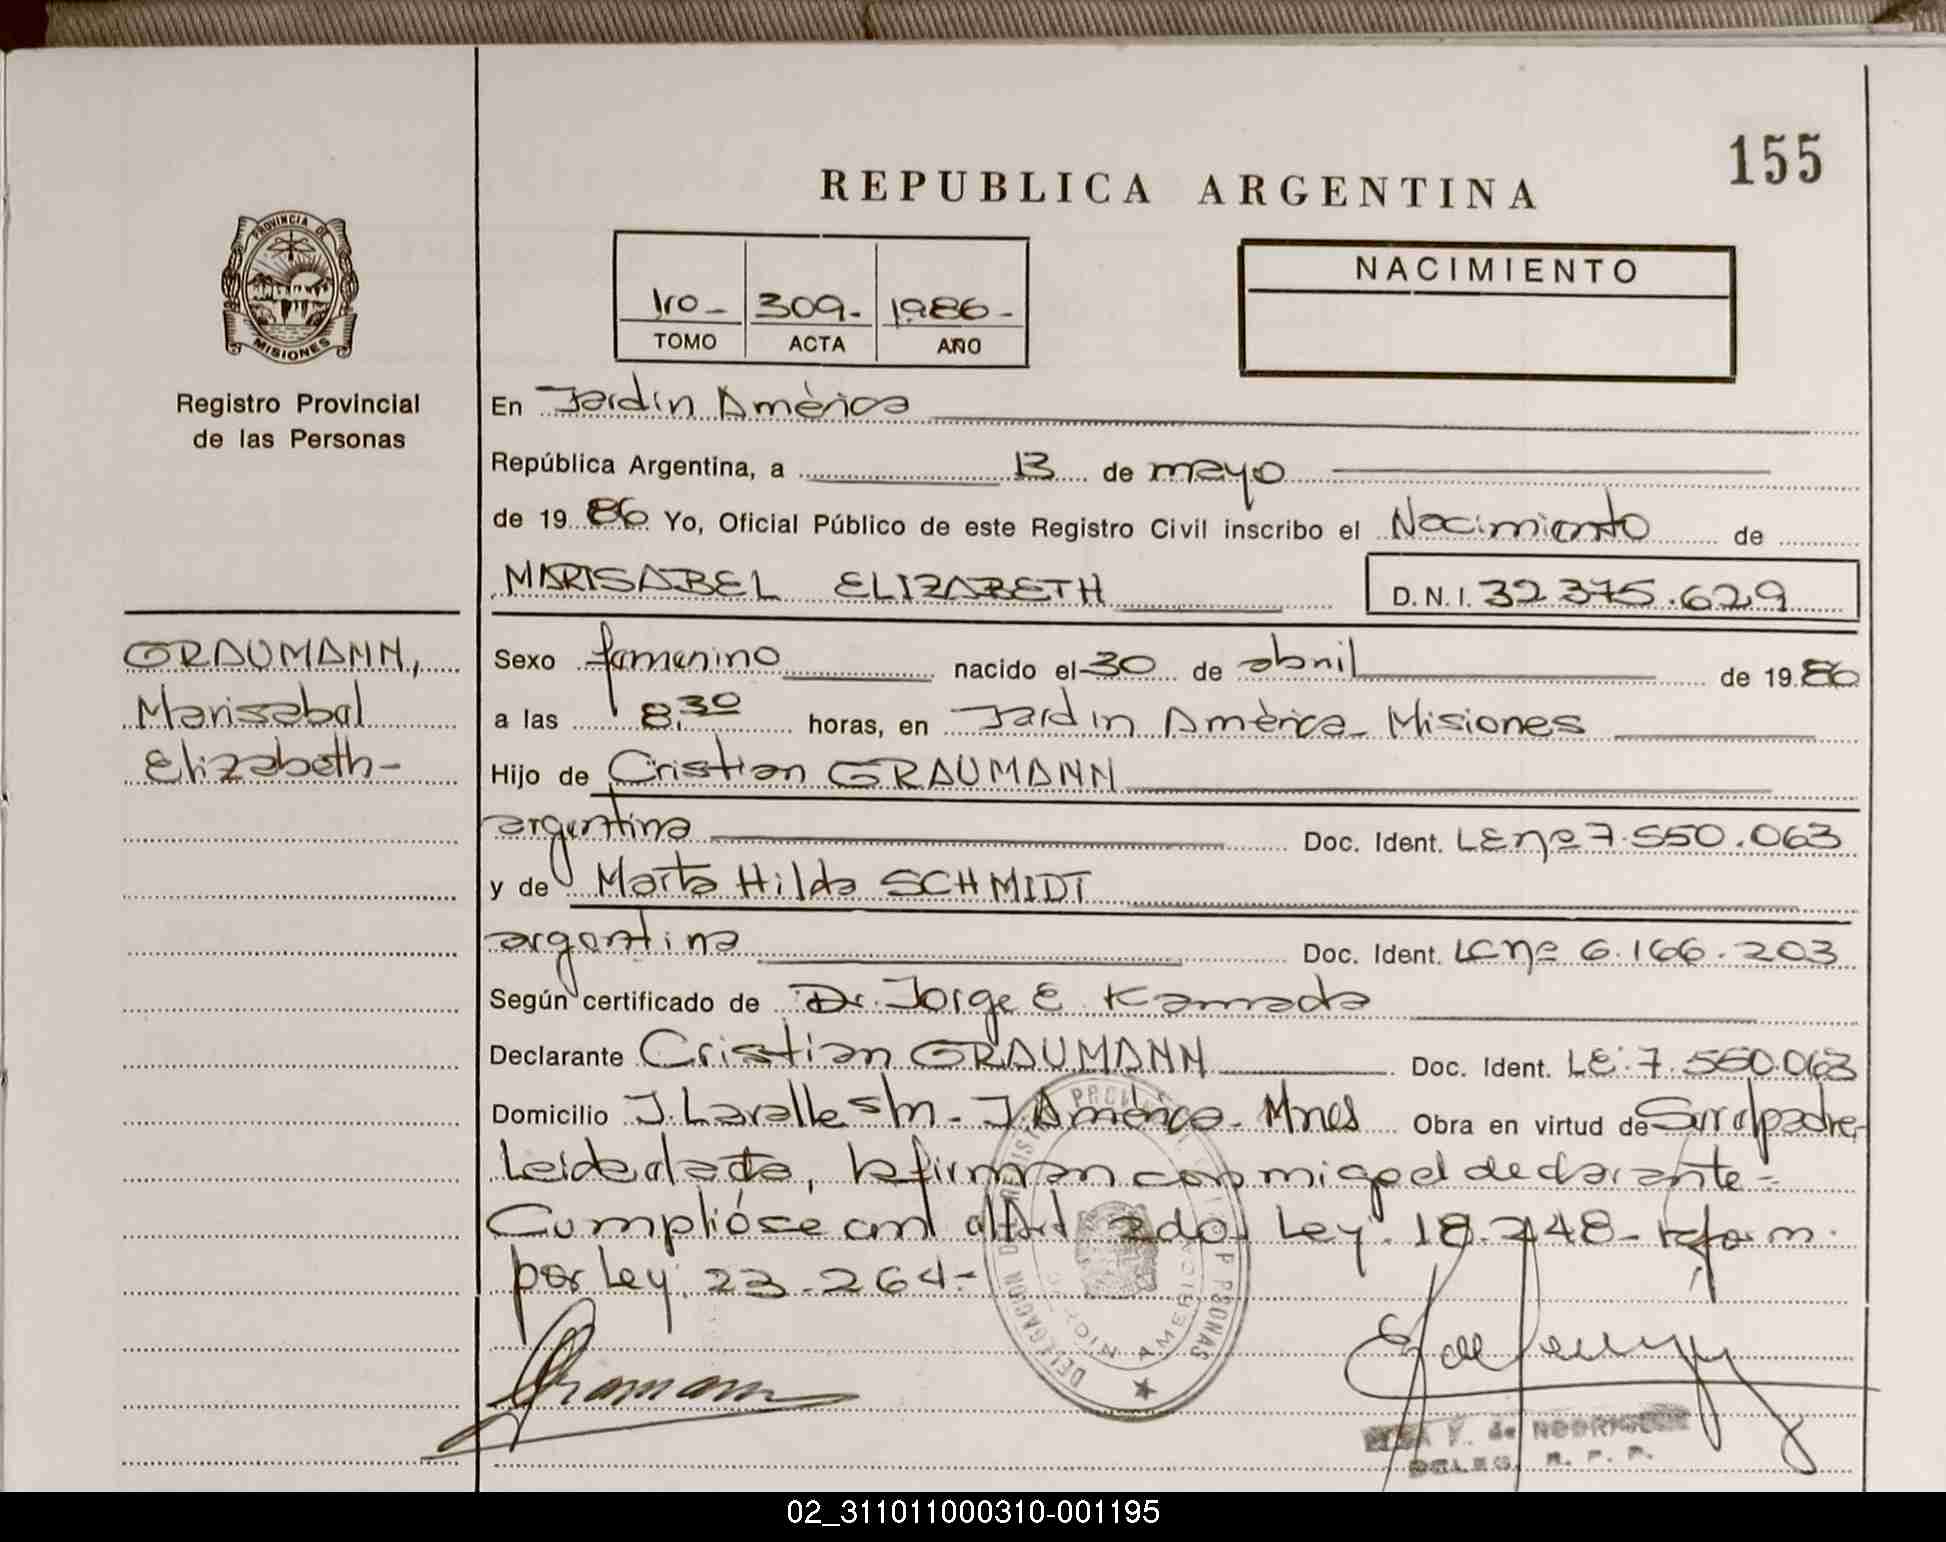 155
REPUBLICA ARGENTINA
PROVINCIA DE
MISIONES
Registro Provincial
de las Personas
1ro- 309.- 1986-
TOMO ACTA AÑO
NACIMIENTO
En Jardín América
República Argentina, a 13 de mayo
de 1986 Yo, Oficial Público de este Registro Civil inscribo el Nacimiento de
MARISABEL ELIZABETH D.N.I. 32375.629
GRAUMANN,
Marisabel
Elizabeth-
Sexo femenino nacido el 30 de abril de 1986
a las 8,30 horas, en Jardín América- Misiones
Hijo de Cristian GRAUMANN
argentina Doc. Ident. LEnº 7.550.063
y de Marta Hilda SCHMIDT
argentina Doc. Ident. LCnº 6.166.203
Según certificado de Dr. Jorge E. Kamada
Declarante Cristian GRAUMANN Doc. Ident. LE: 7.550.063
Domicilio J. Lavalle s/n- J. América- Mnes Obra en virtud de Ser el padre-
Leida el acta, la firman conmigo el declarante=
Cumplióse con el Art 2do Ley: 18.248- reform.
por Ley: 23.264-
Graumann
DELEGACION
AMERICA
de RODRIGUEZ
DELEG. R. P. P.
02_311011000310-001195